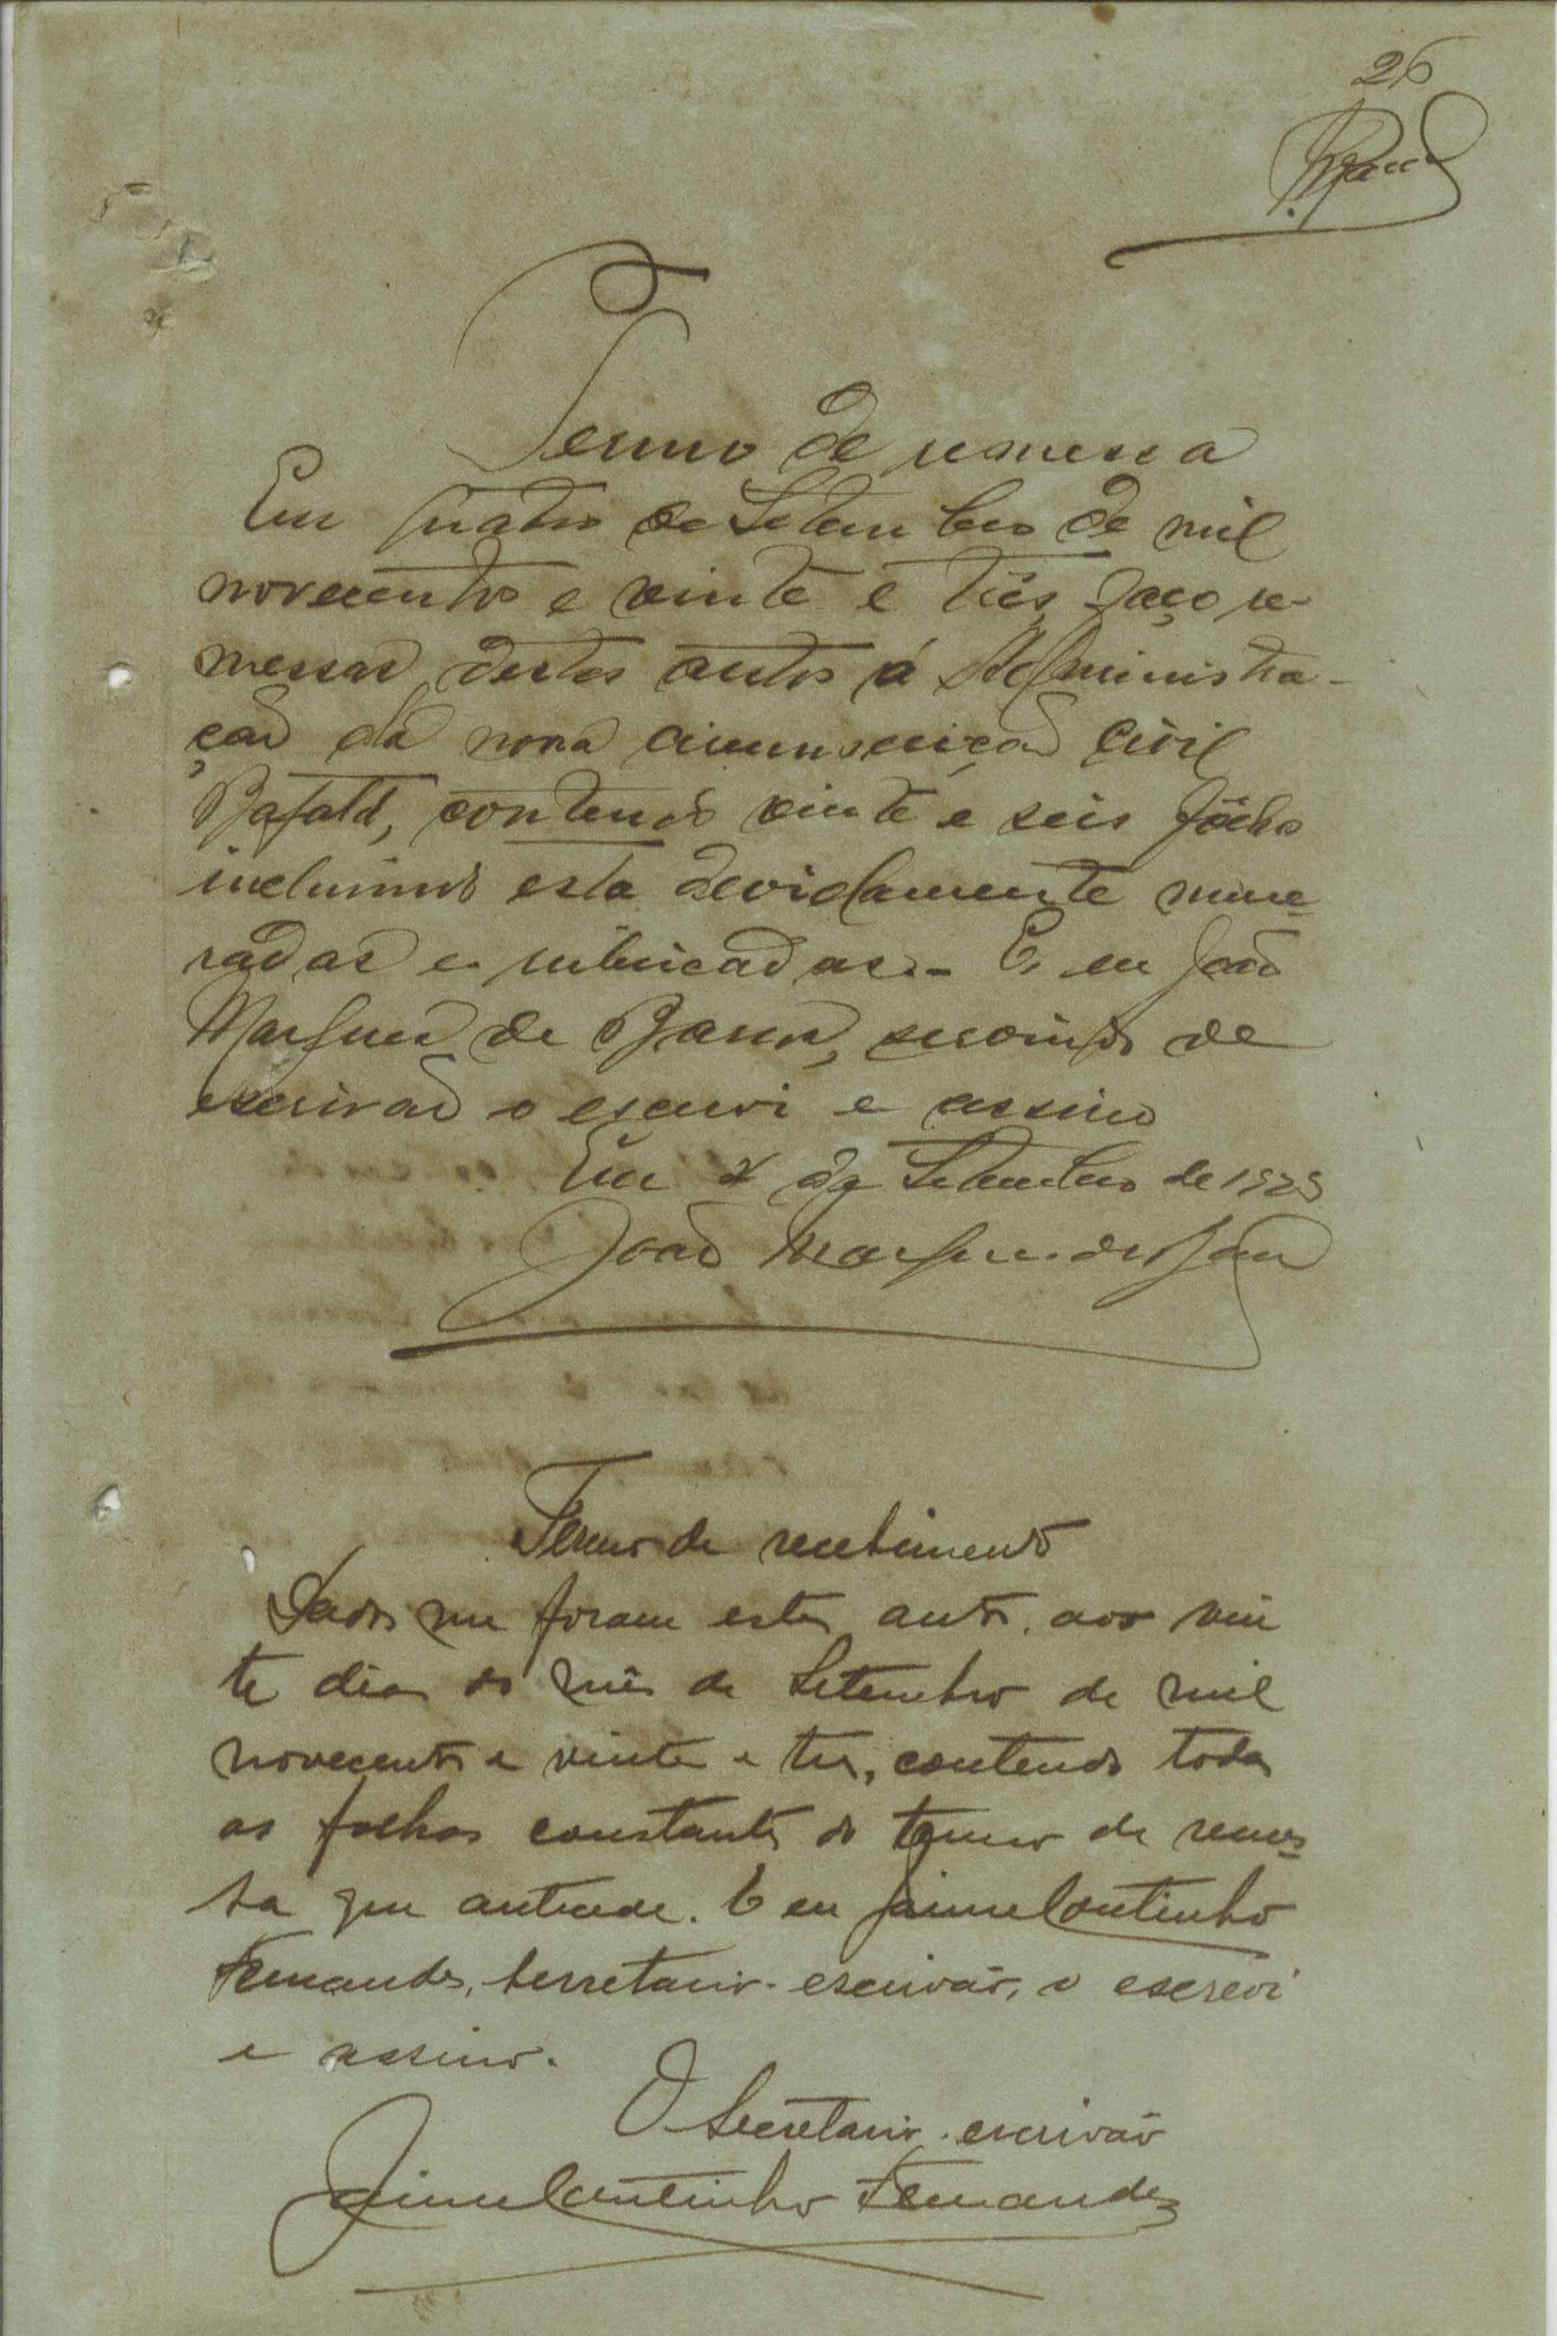 26
Termo de remessa
Em quatro de Setembro de mil
novecentos e vinte e três, faço re-
messa destes autos á Administra-
ção da nona circunscrição civil
Bafatá, contendo vinte e seis fôlhas
incluindo esta devidamente nume-
radas e rubricadas.- E eu João
Marques de Barros, servindo de
escrivão o escrevi e assino
Em 4 de Setembro de 1923
João Marques de Barros
Termo de recebimento
Dados me foram estes autos aos vin
te dias do mês de Setembro de mil
novecentos e vinte e tres, contendo todas
as folhas constantes do termo de remes-
sa que antecede. E eu Jaime Coutinho
Fernandes, secretario-escrivão, o escrevi
e assino.
O Secretario-escrivão
Jaime Coutinho Fernandes